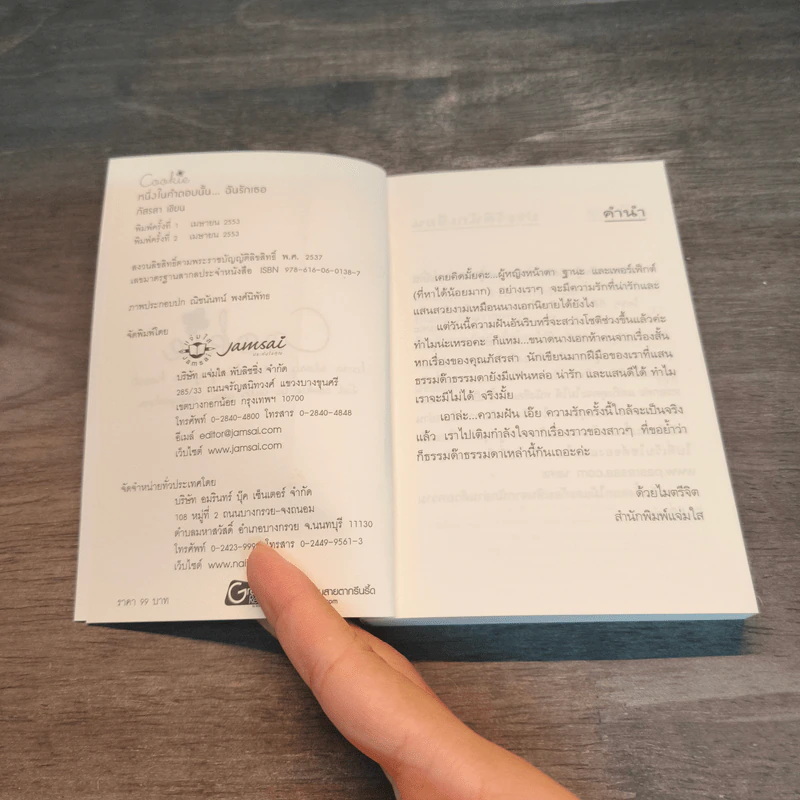 Cookie
หนึ่งในคำตอบนั้น... ฉันรักเธอ
ภัสรสา เขียน
พิมพ์ครั้งที่ 1 เมษายน 2553
พิมพ์ครั้งที่ 2 เมษายน 2553
สงวนลิขสิทธิ์ตามพระราชบัญญัติลิขสิทธิ์ พ.ศ. 2537
เลขมาตรฐานสากลประจำหนังสือ ISBN 978-616-06-0138-7
ภาพประกอบปก ณิชนันทน์ พงศ์นิพัทธ
จัดพิมพ์โดย
jamsai
บริษัท แจ่มใส พับลิชชิ่ง จำกัด
285/33 ถนนจรัญสนิทวงศ์ แขวงบางขุนศรี
เขตบางกอกน้อย กรุงเทพฯ 10700
โทรศัพท์ 0-2840-4800 โทรสาร 0-2840-4848
อีเมล์ editor@jamsai.com
เว็บไซต์ www.jamsai.com
จัดจำหน่ายทั่วประเทศโดย
บริษัท อมรินทร์ บุ๊ค เซ็นเตอร์ จำกัด
108 หมู่ที่ 2 ถนนบางกรวย-จงถนอม
ตำบลมหาสวัสดิ์ อำเภอบางกรวย จ.นนทบุรี 11130
โทรศัพท์ 0-2423-999 โทรสาร 0-2449-9561-3
เว็บไซต์ www.nai
ราคา 99 บาท
สายตากรีนรี้ด
.com
คำนำ
เคยคิดมั้ยคะ...ผู้หญิงหน้าตา ฐานะ และเพอร์เฟ็กต์
(ที่หาได้น้อยมาก) อย่างเราๆ จะมีความรักที่น่ารักและ
แสนสวยงามเหมือนนางเอกนิยายได้ยังไง
แต่วันนี้ความฝันอันริบหรี่จะสว่างโชติช่วงขึ้นแล้วค่ะ
ทำไมน่ะเหรอคะ ก็แหม...ขนาดนางเอกห้าคนจากเรื่องสั้น
หกเรื่องของคุณภัสรสา นักเขียนมากฝีมือของเราที่แสน
ธรรมด๊าธรรมดายังมีแฟนหล่อ น่ารัก และแสนดีได้ ทำไม
เราจะมีไม่ได้ จริงมั้ย
เอาล่ะ...ความฝัน เอ๊ย ความรักครั้งนี้ใกล้จะเป็นจริง
แล้ว เราไปเติมกำลังใจจากเรื่องราวของสาวๆ ที่ขอย้ำว่า
ก็ธรรมด๊าธรรมดาเหล่านี้กันเถอะค่ะ
ด้วยไมตรีจิต
สำนักพิมพ์แจ่มใส